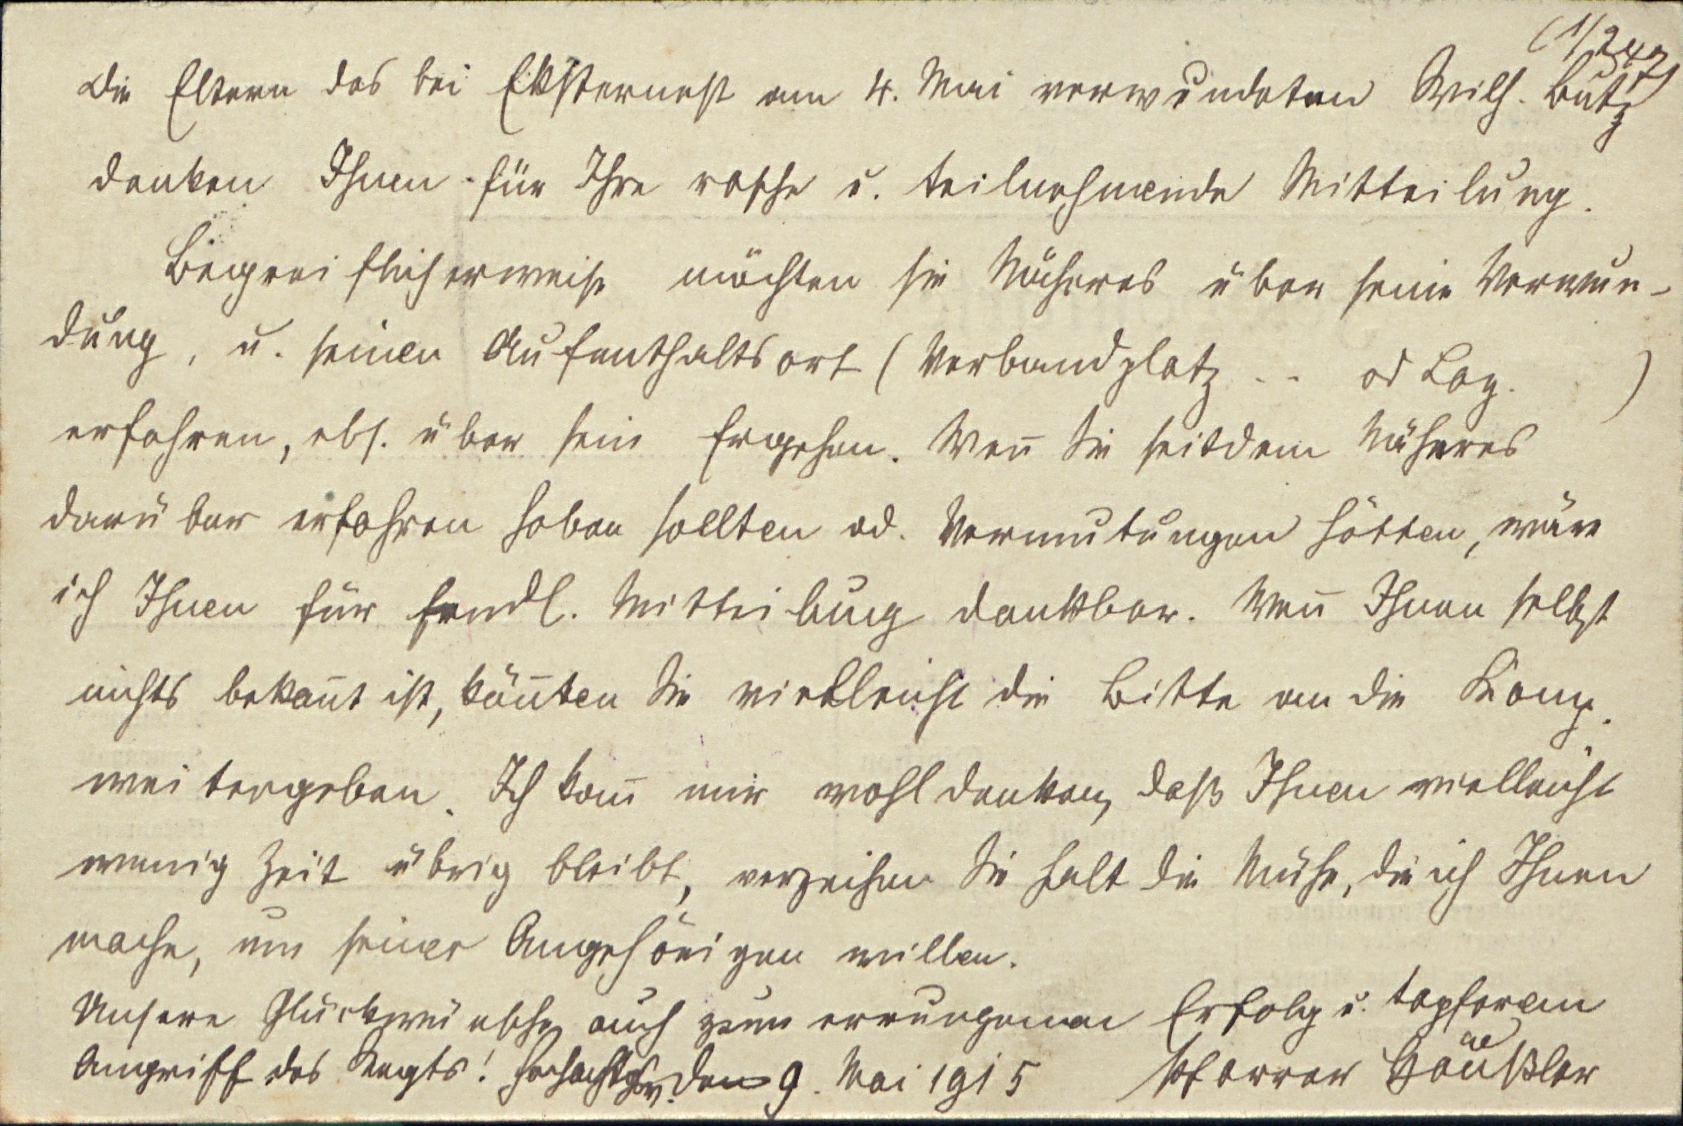 (1/247)
Die Eltern des bei Eksternest am 4. Mai verwundeten Wilh. Butz
danken Ihnen für Ihre rasche u. teilnehmende Mitteilung.
Begreiflicherweise möchten sie Näheres über seine Verwun-
dung, u. seinen Aufenthaltsort (Verbandplatz .. od Laz. )
erfahren, ebs. über sein Ergehen. Wen̄ Sie seitdem Näheres
darüber erfahren haben sollten od. Vermutungen hätten, wäre
ich Ihnen für frndl. Mitteilung dankbar. Wen̄ Ihnen selbst
nichts bekan̄t ist, kön̄ten Sie vielleicht die Bitte an die Komp.
weitergeben. Ich kan̄ mir wohl denken, daß Ihnen vielleicht
wenig Zeit übrig bleibt, verzeihen Sie halt die Mühe, die ich Ihnen
mache, um seiner Angehörigen willen.
Unsere Glückwünsche auch zum errungenen Erfolg u. tapferem
Angriff des Regts! Hochachtgsv. den 9. Mai 1915 Pfarrer Häußler